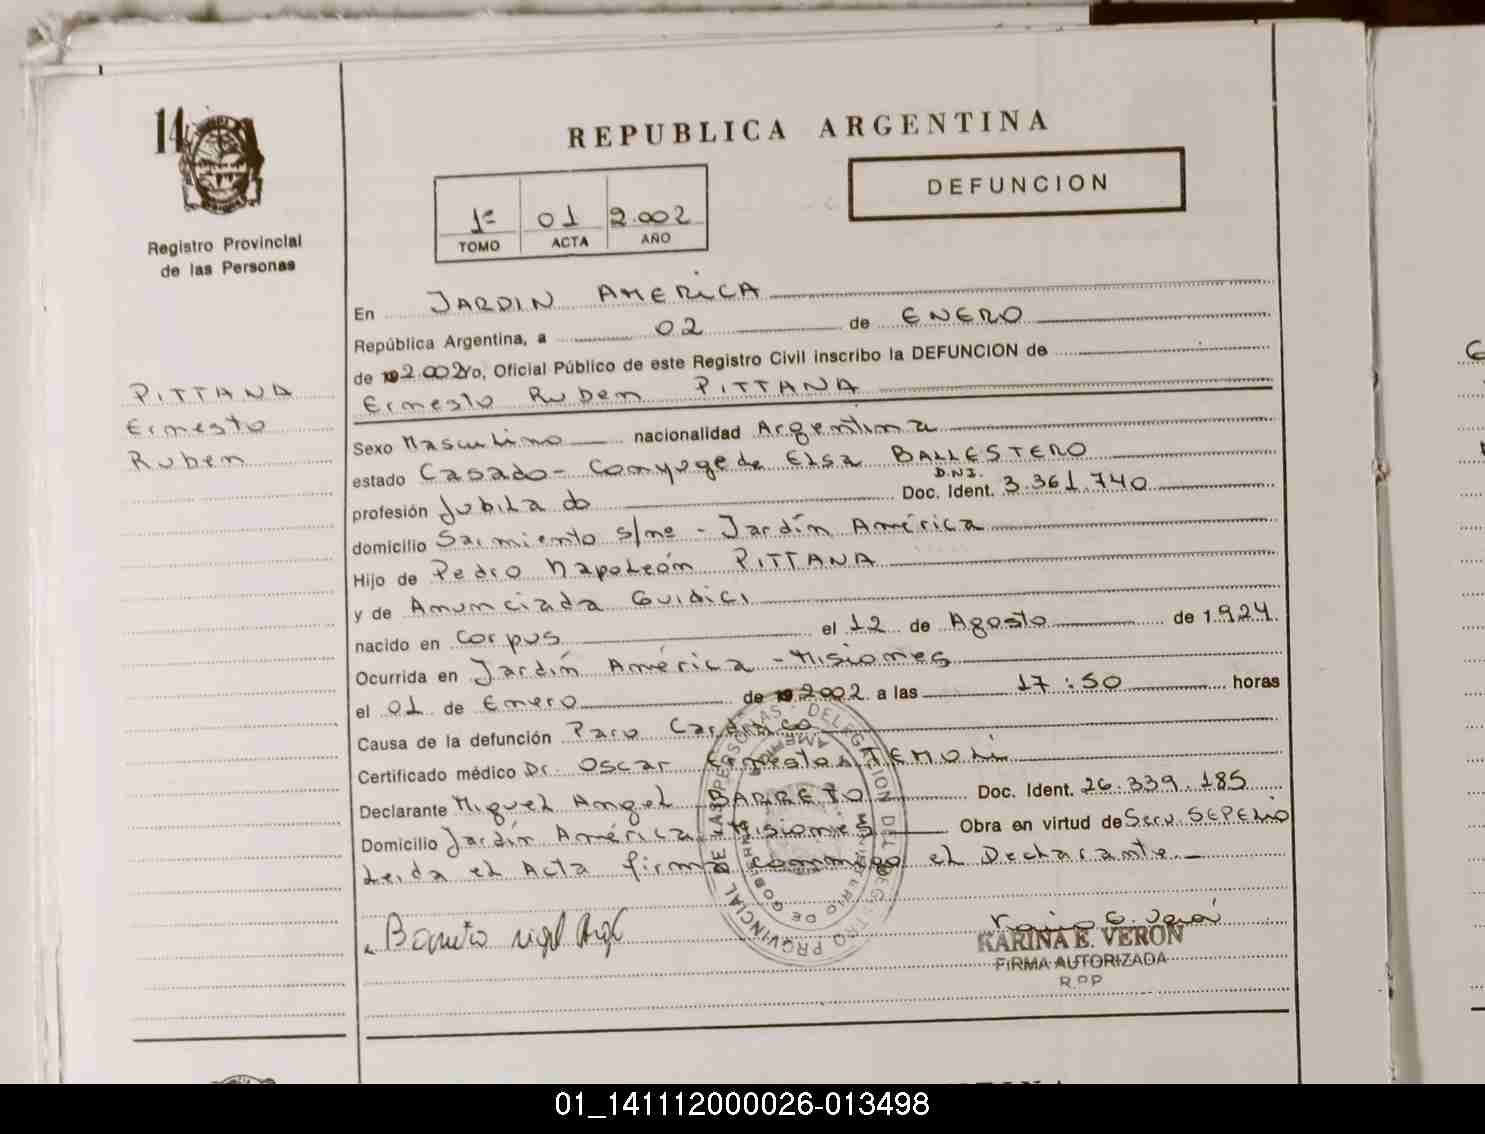 14
Registro Provincial
de las Personas
REPUBLICA ARGENTINA
DEFUNCION
1º 01 2.002
TOMO ACTA AÑO
PITTANA
Ernesto
Ruben
En JARDIN AMERICA
República Argentina, a 02 de ENERO
de 192.002 Yo, Oficial Público de este Registro Civil inscribo la DEFUNCION de
Ernesto Ruben PITTANA
Sexo Masculino nacionalidad Argentina
estado Casado - Conyuge de Elsa BALLESTERO
profesión Jubilado Doc. Ident. D.N.I. 3.361.740
domicilio Sarmiento s/nº - Jardín América
Hijo de Pedro Napoleón PITTANA
y de Anunciada Guidici
nacido en Corpus el 12 de Agosto de 1.924
Ocurrida en Jardín América - Misiones
el 01 de Enero de 192002 a las 17:50 horas
Causa de la defunción Paro Cardiaco
Certificado médico Dr. Oscar Ernesto
Declarante Miguel Angel BARRETO Doc. Ident. 26.339.185
Domicilio Jardín América Misiones Obra en virtud de Serv. SEPELIO
Leida el Acta firma conmigo el Declarante
KARINA E. VERON
FIRMA AUTORIZADA
R.P.P
PROVINCIAL DE LAS PERSONAS - DELEGACION DEL REGISTRO
MINISTERIO DE GOBIERNO
01_141112000026-013498